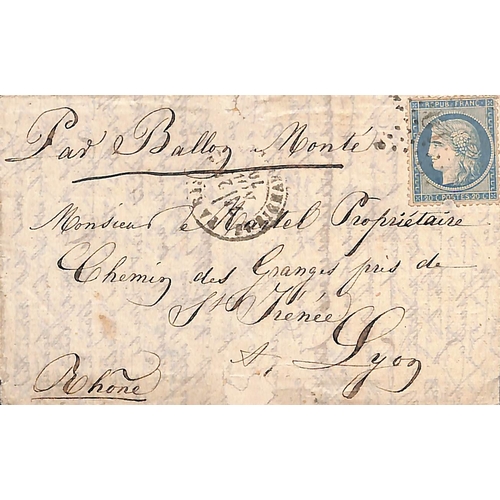 REPUB. FRANC.
Par Ballon Monté
20 C POSTES 20 C
PARIS
Monsieur de Propriétaire
Chemin des Granges près de
St Irénée
Lyon
Rhône